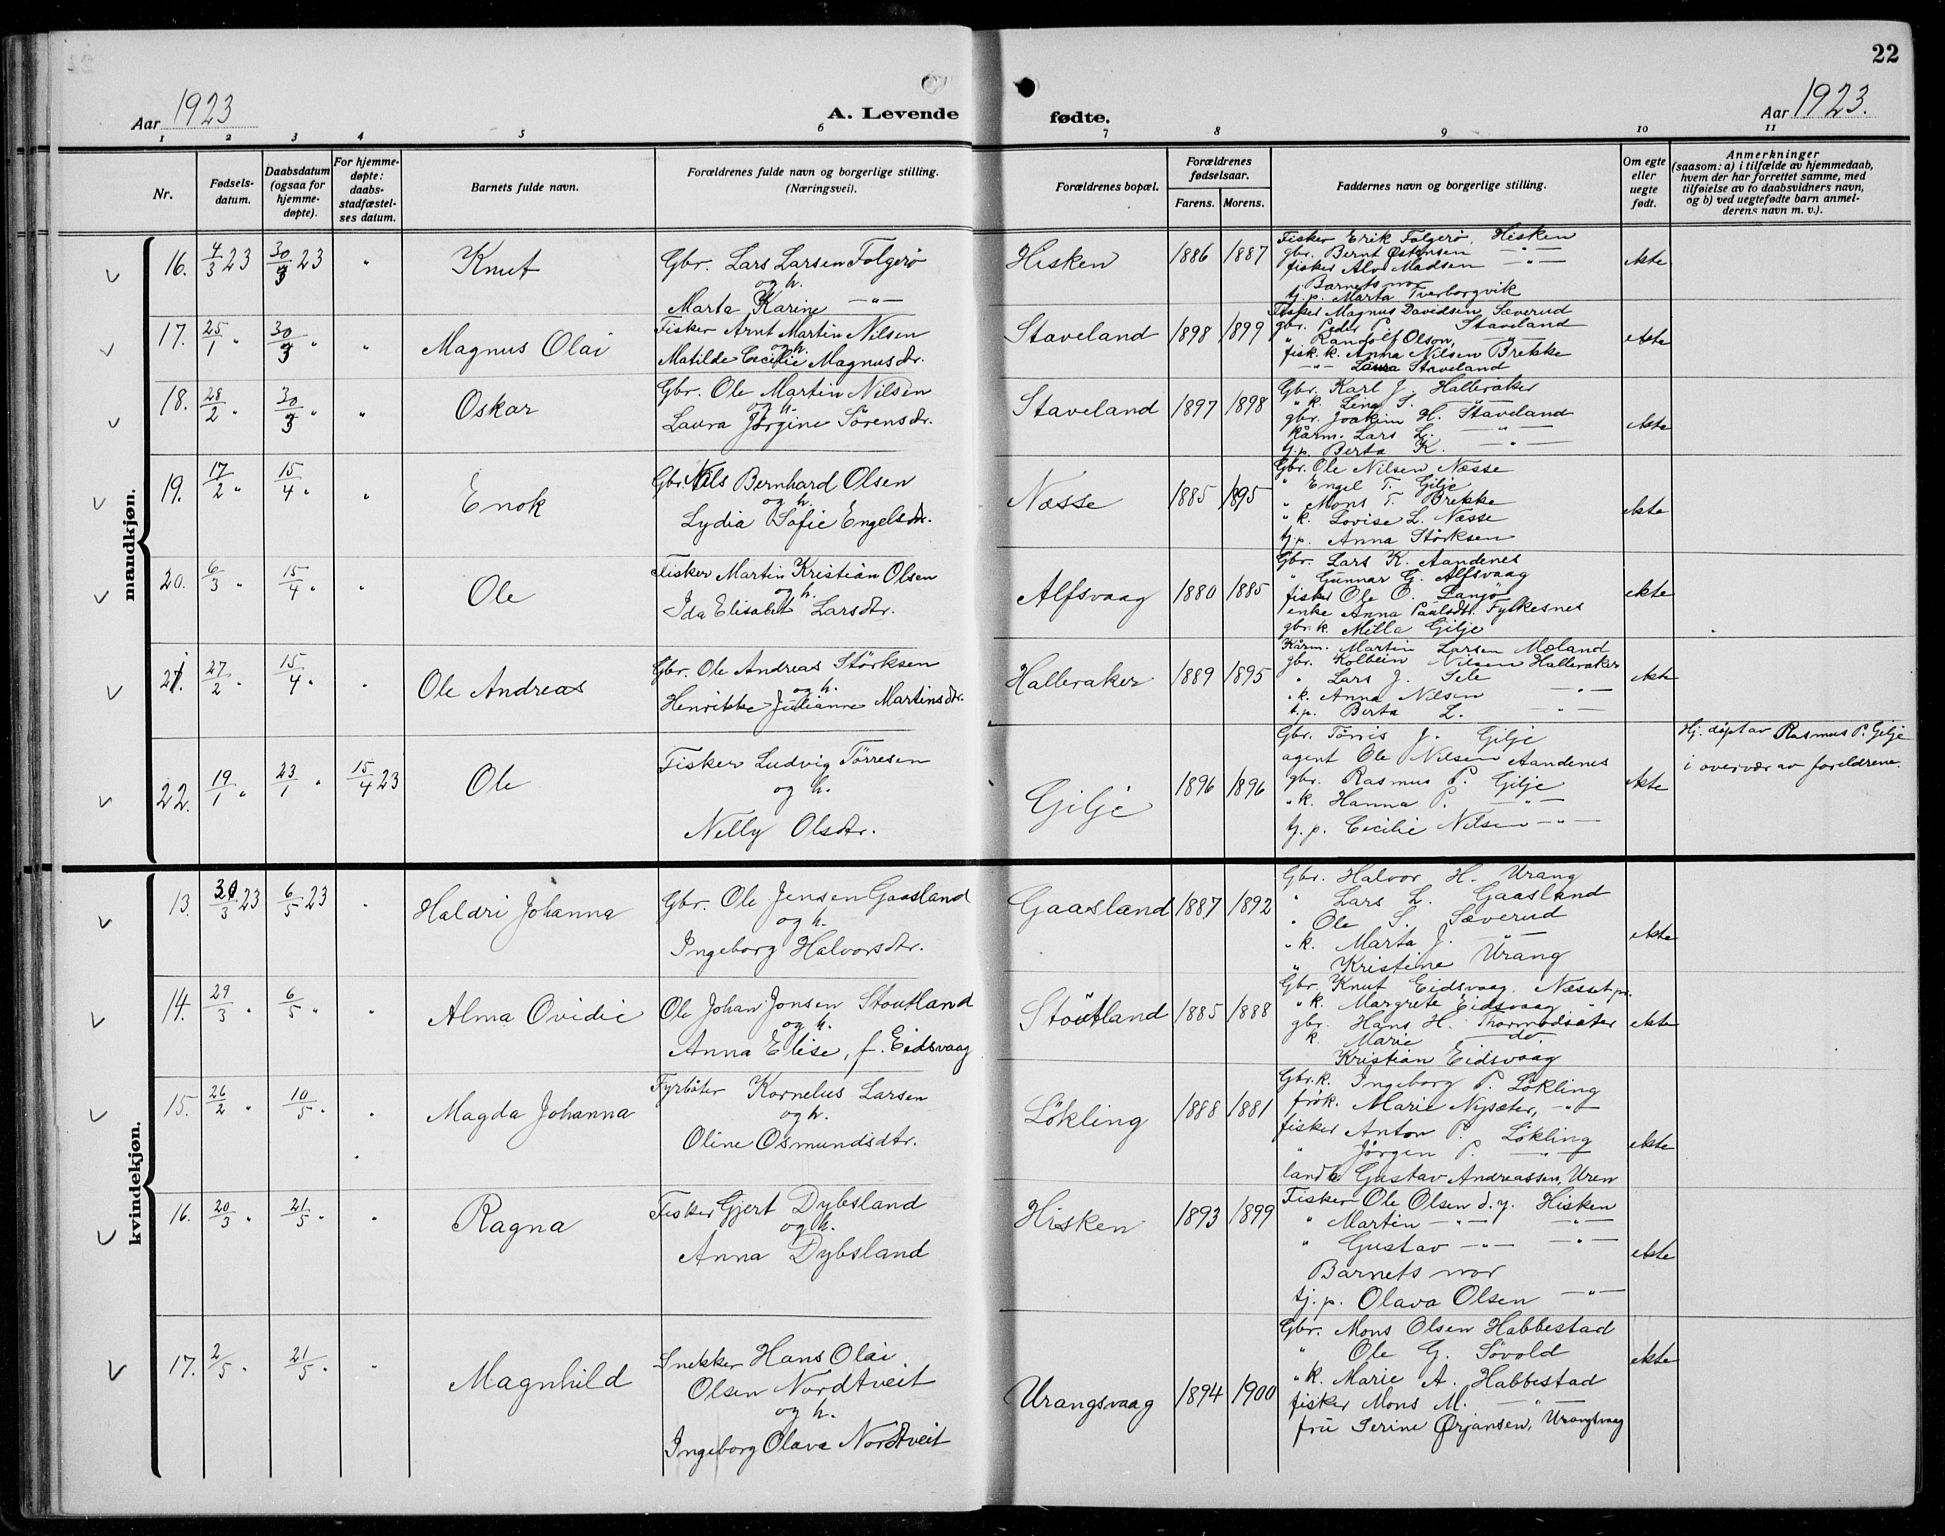 22
Aar 1923
A. Levende fødte.
Aar 1923.
1 2 3 4 5 6 7 8 9 10 11
Nr.
Fødsels-
datum.
Daabsdatum
(ogsaa for
hjemme-
døpte).
For hjemme-
døpte:
daabs-
stadfæstel-
ses datum.
Barnets fulde navn.
Forældrenes fulde navn og borgerlige stilling.
(Næringsveil).
Forældrenes bopæl.
Forældrenes
fødselsaar.
Farens. Morens.
Faddernes navn og borgerlige stilling.
Om egte
eller
uegte
født.
Anmerkninger
(saasom: a) i tilfælde av hjemmedaab,
hvem der har forrettet samme, med
tilføielse av to daabsvidners navn,
og b) ved uegtefødte barn anmel-
derens navn m. v.).
mandkjøn.
16. 4/3 23 30/3 23 " Knut
Gbr. Lars Larsen Folgerø
og h.
Marta Karine —"—
Hisken 1886 1887
Fisker Erik Folgerø, Hisken
gbr. Bernt Østensen —"—
fisker Alv Madsen —"—
Barnets mor
tj. p. Marta Tverborgvik
ekte
17. 25/1 " 30/3 " " Magnus Olai
Fisker Arnt Martin Nilsen
og h.
Matilde Cecilie Magnusdr.
Staveland 1898 1899
Fisker Magnus Davidsen Sæverud
gbr. Peder P. Staveland
" Randolf Olson, —"—
fisk. k. Anna Nilsen Brekke
—"— Laura Staveland
ekte
18. 28/2 " 30/3 " " Oskar
Gbr. Ole Martin Nilsen
og h.
Laura Jørgine Sørensdr.
Staveland 1897 1898
Gbr. Karl J. Halleraker
" k. Lina S. —"—
gbr. Joakim H. Staveland
kårm. Lars L. —"—
tj. p. Berta K. —"—
ekte
19. 17/2 " 15/4 " " Enok
Gbr. Nils Bernhard Olsen
og h.
Lydia Sofie Engelsdr.
Næsse 1885 1895
Gbr. Ole Nilsen Næsse
" Engel T. Gilje
" Mons T. Brekke
" k. Lovise L. Næsse
tj. p. Anna Størksen
ekte
20. 6/3 " 15/4 " " Ole
Fisker Martin Kristian Olsen
og h.
Ida Elisabet Larsdtr.
Alfsvaag 1880 1885
Gbr. Lars K. Aandenes
" Gunnar G. Alfsvaag
fisker Ole O. Lanjø
enke Anna Paulsdtr. Fylkesnes
gbr. k. Milla Gilje
ekte
21. 27/2 " 15/4 " " Ole Andreas
Gbr. Ole Andreas Størksen
og h.
Henrikke Julianne Martinsdr.
Halleraker 1889 1895
Kårm. Martin Larsen Mæland
gbr. Kolbein Nilsen Halleraker
" Lars J. Sele
" k. Anna Nilsen —"—
t. p. Berta L. —"—
ekte
22. 19/1 " 23/1 " 15/4 23 Ole
Fisker Ludvig Tørresen
og h.
Nelly Olsdtr.
Gilje 1896 1896
Gbr. Tørris J. Gilje
agent Ole Nilsen Aandenes
gbr. Rasmus P. Gilje
" k. Hanna P. —"—
tj. p. Cecilie Nilsen —"—
ekte
Hj. døpt av Rasmus P. Gilje
i overvær av foreldrene.
kvindekjøn.
13. 30/3 23 6/5 23 " Haldri Johanna
Gbr. Ole Jensen Gaasland
og h.
Ingeborg Halvorsdtr.
Gaasland 1887 1892
Gbr. Halvor H. Urang
" Lars L. Gaasland
" Ole S. Sæverud
" k. Marta J. —"—
" Kristine Urang
ekte
14. 29/3 " 6/5 " " Alma Ovidie
Ole Johan Jonsen Stoutland
og h.
Anna Elise, f. Eidsvaag
Stoutland 1885 1888
Gbr. Knut Eidsvaag, Næsset pr.
" k. Margrete Eidsvaag "
gbr. Hans H. Thormodsæter
k. Marie do.
Kristian Eidsvaag
ekte
15. 26/2 " 10/5 " " Magda Johanna
Fyrbøter Kornelius Larsen
og h.
Oline Osmundsdtr.
Løkling 1888 1881
Gbr. k. Ingeborg P. Løkling
frøk. Marie Nysæter, —"—
fisker Anton P. Løkling
" Jørgen P. —"—
landh. Gustav Andreassen, Uren
ekte
16. 20/3 " 21/5 " " Ragna
Fisker Gjert Dybsland
og h.
Anna Dybsland
Hisken 1893 1899
Fisker Ole Olsen d. y. Hisken
" Martin —"— —"—
" Gustav —"— —"—
Barnets mor
tj. p. Olava Olsen —"—
ekte
17. 2/5 " 21/5 " " Magnhild
Snekker Hans Olai
Olsen Nordtveit
og h.
Ingeborg Olava Nordtveit
Urangsvaag 1894 1900
Gbr. Mons Olsen Habbestad
" Ole G. Søvold
" k. Marie A. Habbestad
fisker Mons M. —"—
fru Serine Ørjansen, Urangsvaag
ekte